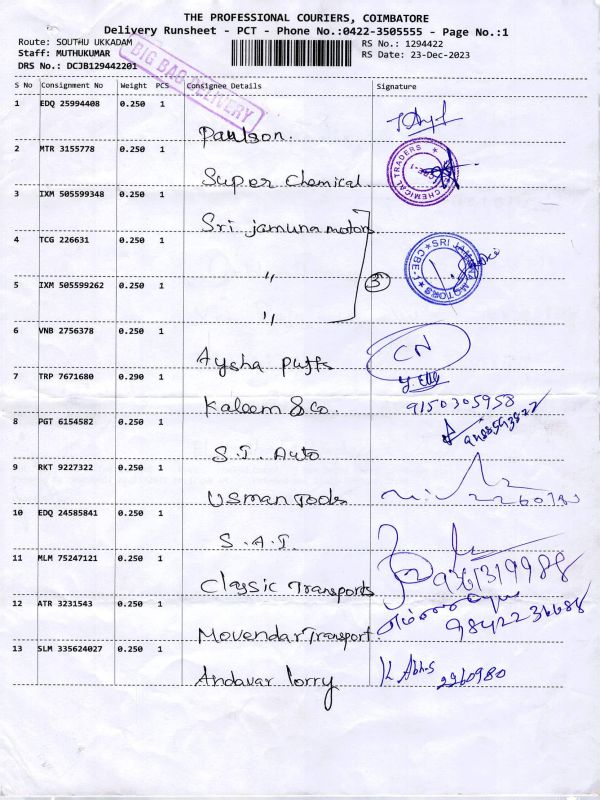 THE PROFESSIONAL COURIERS, COIMBATORE
Delivery Runsheet - PCT - Phone No.:0422-3505555 - Page No.:1
Route: SOUTHU UKKADAM RS No.: 1294422
Staff: MUTHUKUMAR RS Date: 23-Dec-2023
DRS No.: DCJB129442201
BIG BAG DELIVERY
S No Consignment No Weight PCS Consignee Details Signature
1 EDQ 25994408 0.250 1
Paulson.
2 MTR 3155778 0.250 1
CHEMICAL TRADERS
Super Chemical
3 IXM 505599348 0.250 1
Sri jamuna motors
4 TCG 226631 0.250 1
SRI JAMUNA MOTORS CBE-1
"
5 IXM 505599262 0.250 1 3
"
6 VNB 2756378 0.250 1
CN
Aysha Puffs
7 TRP 7671680 0.290 1
Kaleem & Co. 9150305958
8 PGT 6154582 0.250 1
S.I. Auto
9 RKT 9227322 0.250 1
Usman Tools
10 EDQ 24585841 0.250 1
S.A.I.
11 MLM 75247121 0.250 1
Classic Transports
12 ATR 3231543 0.250 1
Movendar Transport. 9842236688
13 SLM 335624027 0.250 1
Andavar lorry 2260980